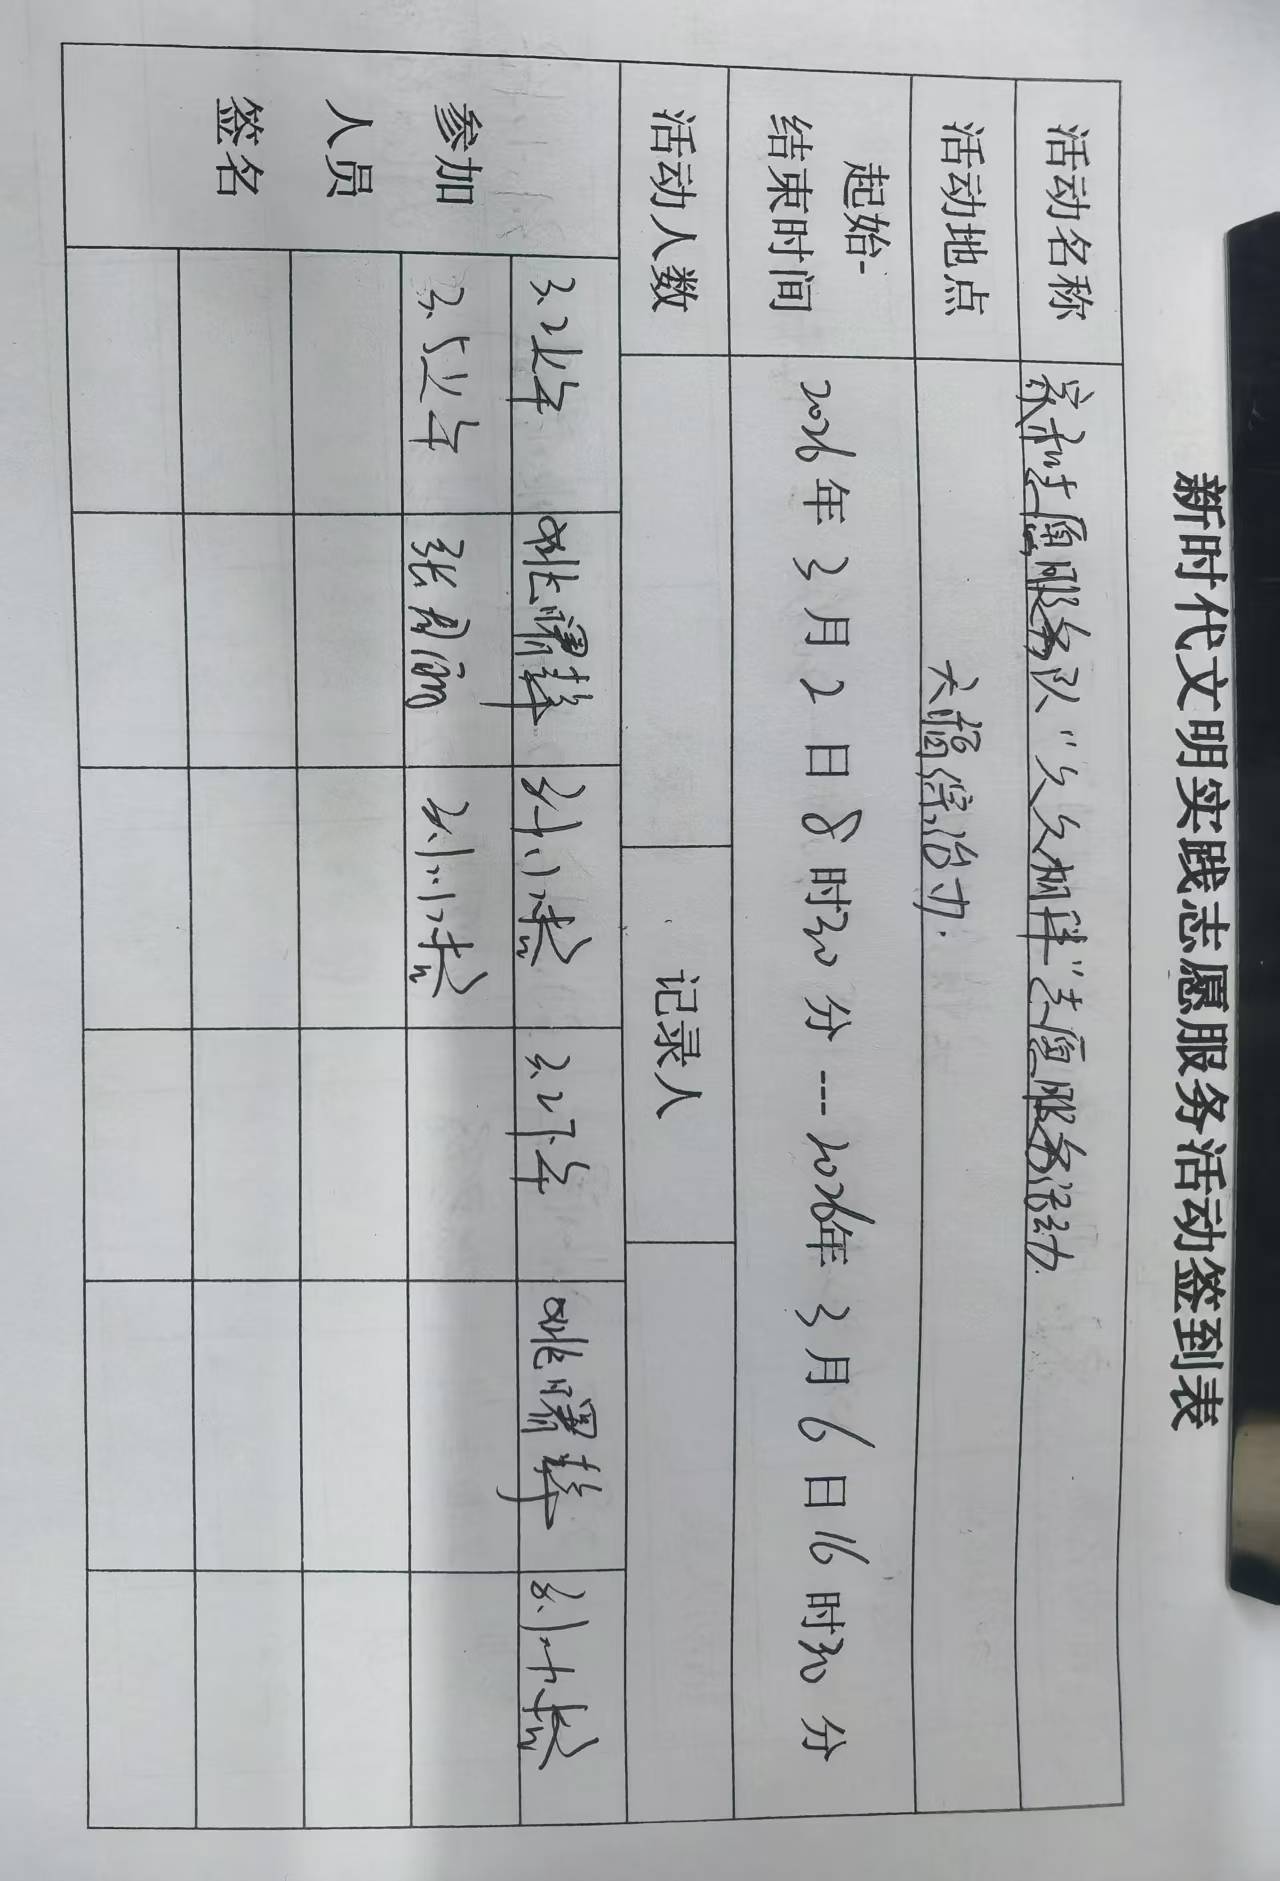 新时代文明实践志愿服务活动签到表
活动名称 家和志愿服务队“久久相伴”志愿服务活动.
活动地点 大福综治办.
起始-
结束时间 2026年3月2日8时30分---2026年3月6日16时30分
活动人数 记录人
参加
人员
签名
3.2上午 姚曙静 3.5上午 张周
3.2下午 姚曙静